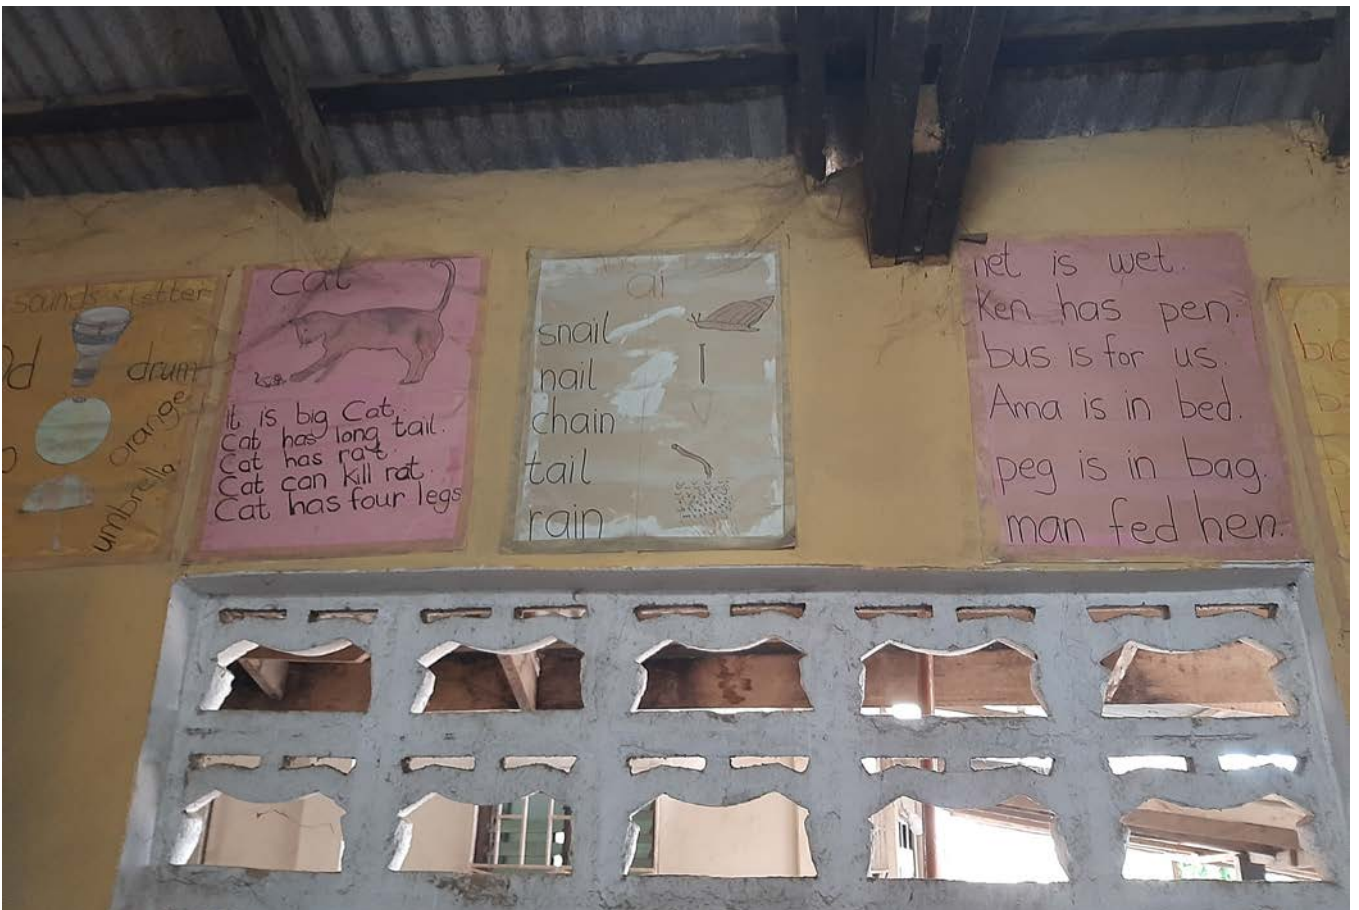 sounds letter
drum
orange
umbrella
Cat
It is big Cat.
Cat has long tail.
Cat has rat.
Cat can kill rat.
Cat has four legs
ai
snail
nail
chain
tail
rain
net is wet.
Ken has pen.
bus is for us.
Ama is in bed.
peg is in bag.
man fed hen.